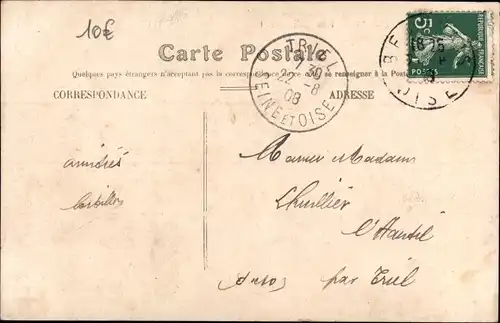 10€
Carte Postale
Quelques pays étrangers n'acceptant pas la correspondance
se renseigner à la Poste
CORRESPONDANCE
ADRESSE
TRIEL
7 30
22 -8
08
SEINE ET OISE
5c
REPUBLIQUE FRANÇAISE
POSTES
OISE
amitiés
Monsieur Madame
Lhuillier
l'Hautil
par Triel